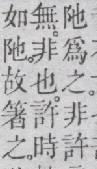 阤爲之非許
無。非也。許時
如阤。故箸之。